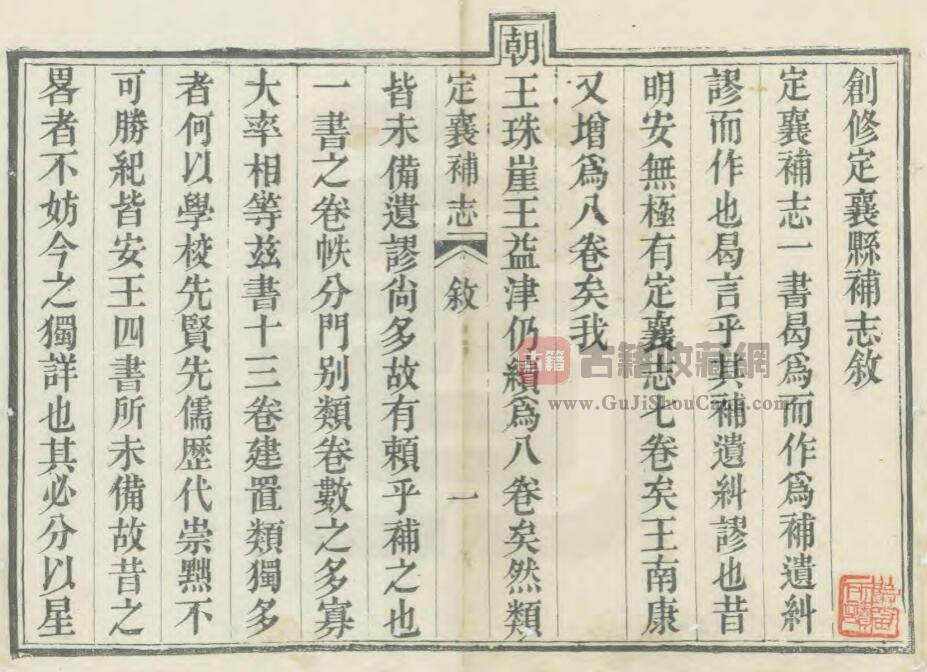 創修定襄縣補志敘
定襄補志一書曷爲而作爲補遺糾
謬而作也曷言乎其補遺糾謬也昔
明安無極有定襄志七卷矣王南康
又增爲八卷矣我
朝
王珠崖王益津仍續爲八卷矣然類
定襄補志 敘 一
皆未備遺謬尙多故有賴乎補之也
一書之卷帙分門别類卷數之多寡
大率相等兹書十三卷建置類獨多
者何以學校先賢先儒歷代崇黜不
可勝紀皆安王四書所未備故昔之
畧者不妨今之獨詳也其必分以星
古籍 古籍收藏網
www.GuJiShouCang.com